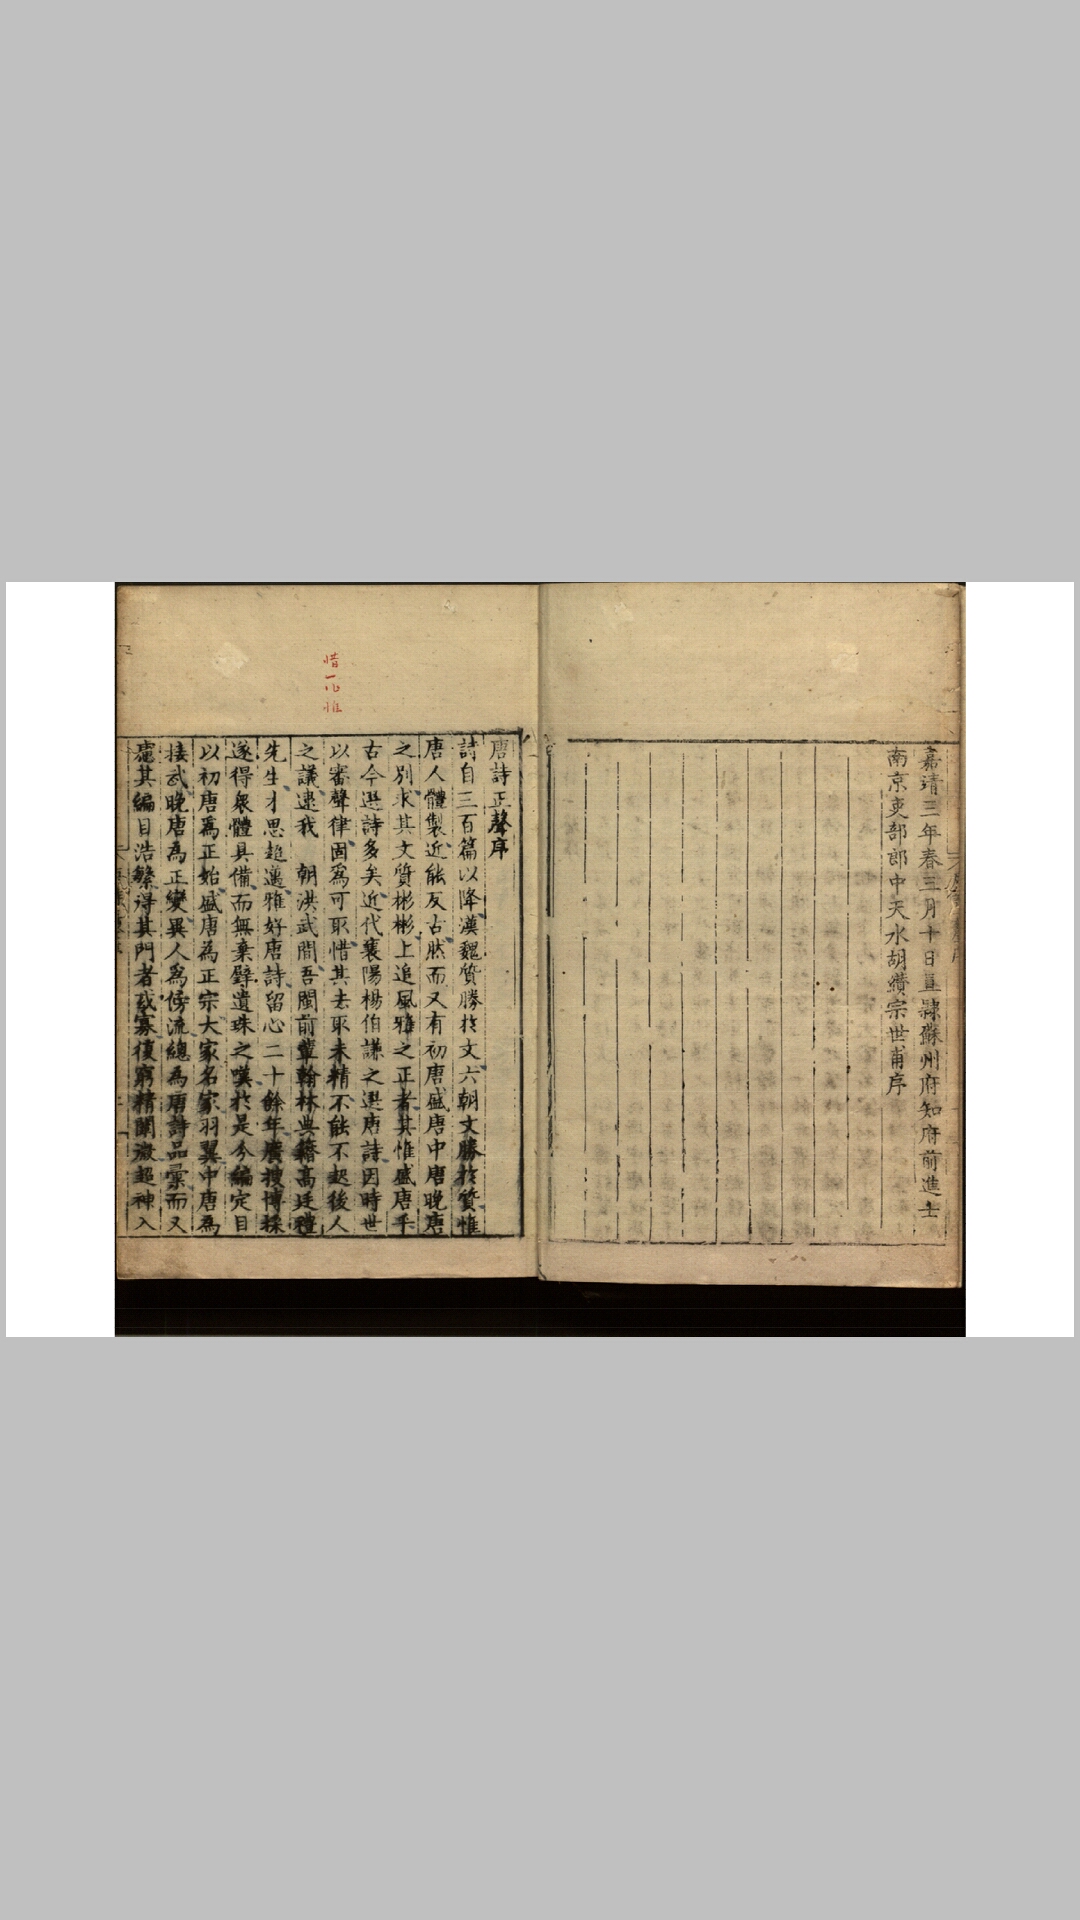 嘉靖三年春三月十日直隸蘇州府知府前進士
南京吏部郎中天水胡纘宗世甫序
惜一作惟
唐詩正聲序
詩自三百篇以降漢魏質勝於文六朝文勝於質惟
唐人體製近能反古然而又有初唐盛唐中唐晚唐
之別求其文質彬彬上追風雅之正者其惟盛唐乎
古今選詩多矣近代襄陽楊伯謙之選唐詩因時世
以審聲律固爲可取惜其去取未精不能不起後人
之議逮我 朝洪武間吾閩前輩翰林典籍高廷禮
先生才思超邁雅好唐詩留心二十餘年廣搜博採
遂得衆體具備而無棄璧遺珠之嘆於是今編定目
以初唐爲正始盛唐為正宗大家名家羽翼中唐為
接武晚唐為正變異人爲傍流總為唐詩品彙而又
慮其編目浩繁得其門者或寡復窮精闡微超神入